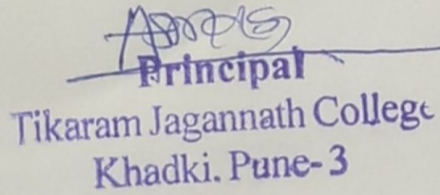 Principal
Tikaram Jagannath College
Khadki. Pune-3